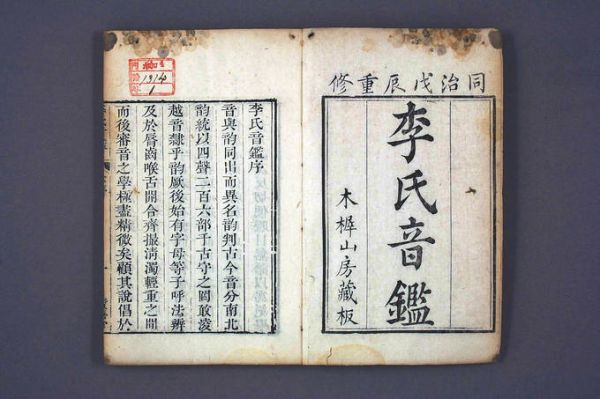 同治戊辰重修
李氏音鑑
木樨山房藏板
李氏音鑑序
音與韵同出而異名韵判古今音分南北
韵統以四聲二百六部千古守之罔敢淩
越音隸乎韵厥後始有字母等子呼法辨
及於脣齒喉舌開合齊撮淸濁輕重之閒
而後審音之學極盡精微矣顧其說倡於
1914
1